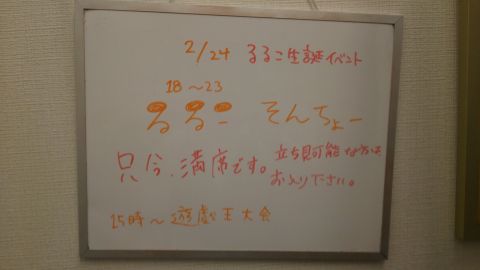 2/24 るるこ生誕イベント
18〜23
るるこ そんちょー
只今、満席です。
立ち見可能な方は、
お入り下さい。
15時〜遊戯王大会